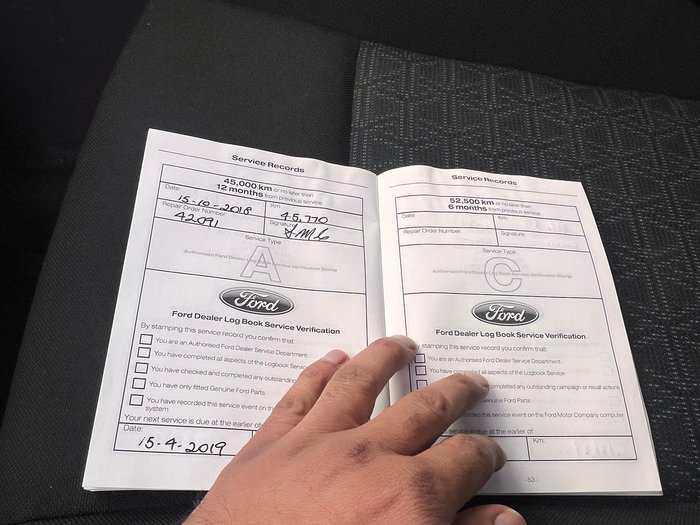 Service Records
45,000 km or no later than
12 months from previous service
Date: Km:
15-10-2018 45,770
Repair Order Number: Signature:
42091
Service Type
A
Authorised Ford Dealer Log Book Service Verification Stamp
Ford
Ford Dealer Log Book Service Verification
By stamping this service record you confirm that:
You are an Authorised Ford Dealer Service Department
You have completed all aspects of the Logbook Service
You have checked and completed any outstanding
You have only fitted Genuine Ford Parts
You have recorded this service event on the
system
Your next service is due at the earlier of
Date:
15-4-2019
Service Records
52,500 km or no later than
6 months from previous service
Date: Km:
Repair Order Number: Signature:
Service Type
C
Authorised Ford Dealer Log Book Service Verification Stamp
Ford
Ford Dealer Log Book Service Verification
stamping this service record you confirm that:
You are an Authorised Ford Dealer Service Department
You have completed all aspects of the Logbook Service
completed any outstanding campaign or recall actions
Genuine Ford Parts
recorded this service event on the Ford Motor Company computer
service is due at the earlier of:
Km:
-53-